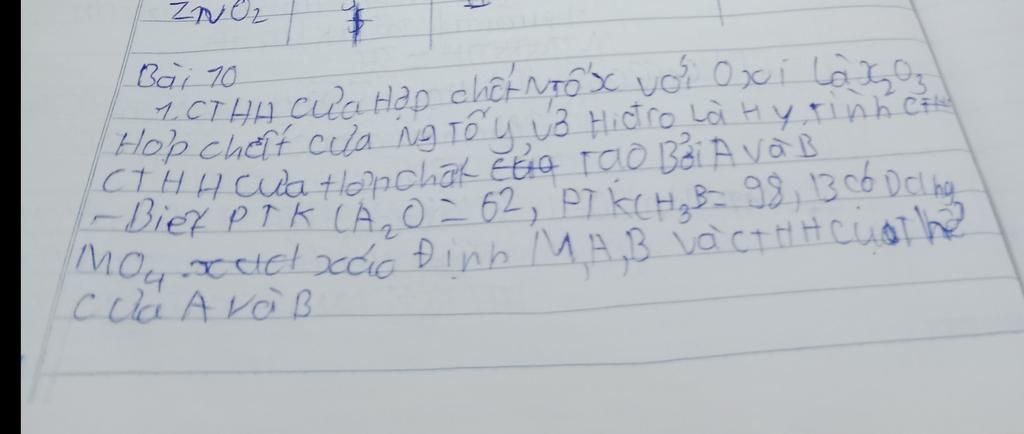 ZNO2
Bài 10
1. CTHH Của Hợp chất NTỐ X với Oxi Là X2O3
Hợp chất của Ng Tố y, với Hiđro Là Hy, Tính CTHH
CTHH Của Hợp chất TAO Bởi A Và B
- Biết PTK (A2O = 62, PTK(H3B = 98, B có Dạng
MO4. xác Định M, A, B Và CTHH Của
Của A Và B